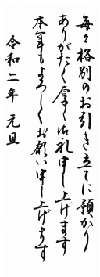 毎々格別のお引き立てに預かり
ありがたく厚く御礼申し上げます
本年もよろしくお願い申し上げます
令和二年 元旦